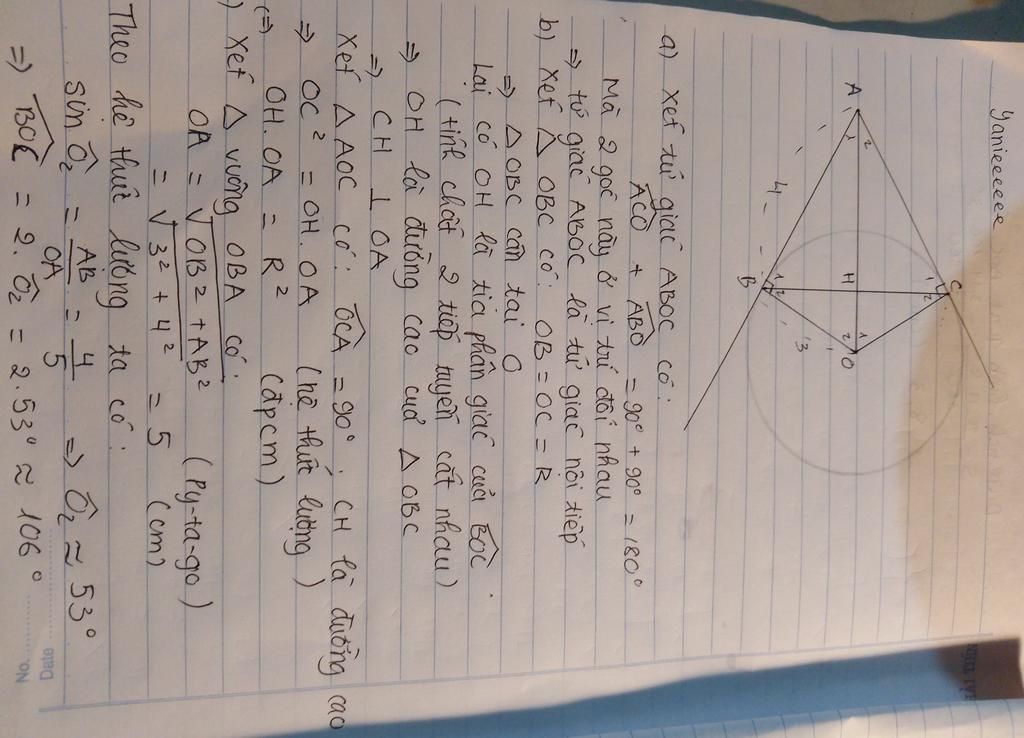 Yanieeeeee
A
1
2
4
B
1
2
H
C
1
2
1
2
O
3
a) Xét tứ giác ABOC có:
ACO + ABO = 90° + 90° = 180°
Mà 2 góc này ở vị trí đối nhau
=> tứ giác ABOC là tứ giác nội tiếp
b) Xét △ OBC có: OB = OC = R
=> △ OBC cân tại O
Lại có OH là tia phân giác của BOC.
(tính chất 2 tiếp tuyến cắt nhau)
=> OH là đường cao của △ OBC
=> CH ⊥ OA
Xét △ AOC có: OCA = 90°. CH là đường cao
=> OC² = OH. OA (hệ thức lượng)
(=) OH. OA = R² (đpcm)
) Xét △ vuông OBA có:
OA = √OB² + AB² (Py-ta-go)
= √3² + 4² = 5 (cm)
Theo hệ thức lượng ta có:
sin Ô₂ = AB/OA = 4/5 => Ô₂ ≈ 53°
=> BOC = 2. Ô₂ = 2. 53° ≈ 106°
No.
Date